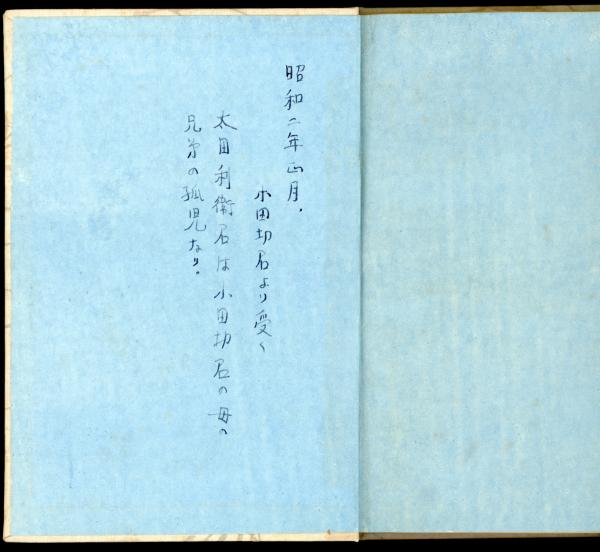 昭和二年正月.
小田切君より受く
太田利衛君は小田切君の母の
兄弟の孤児なり。